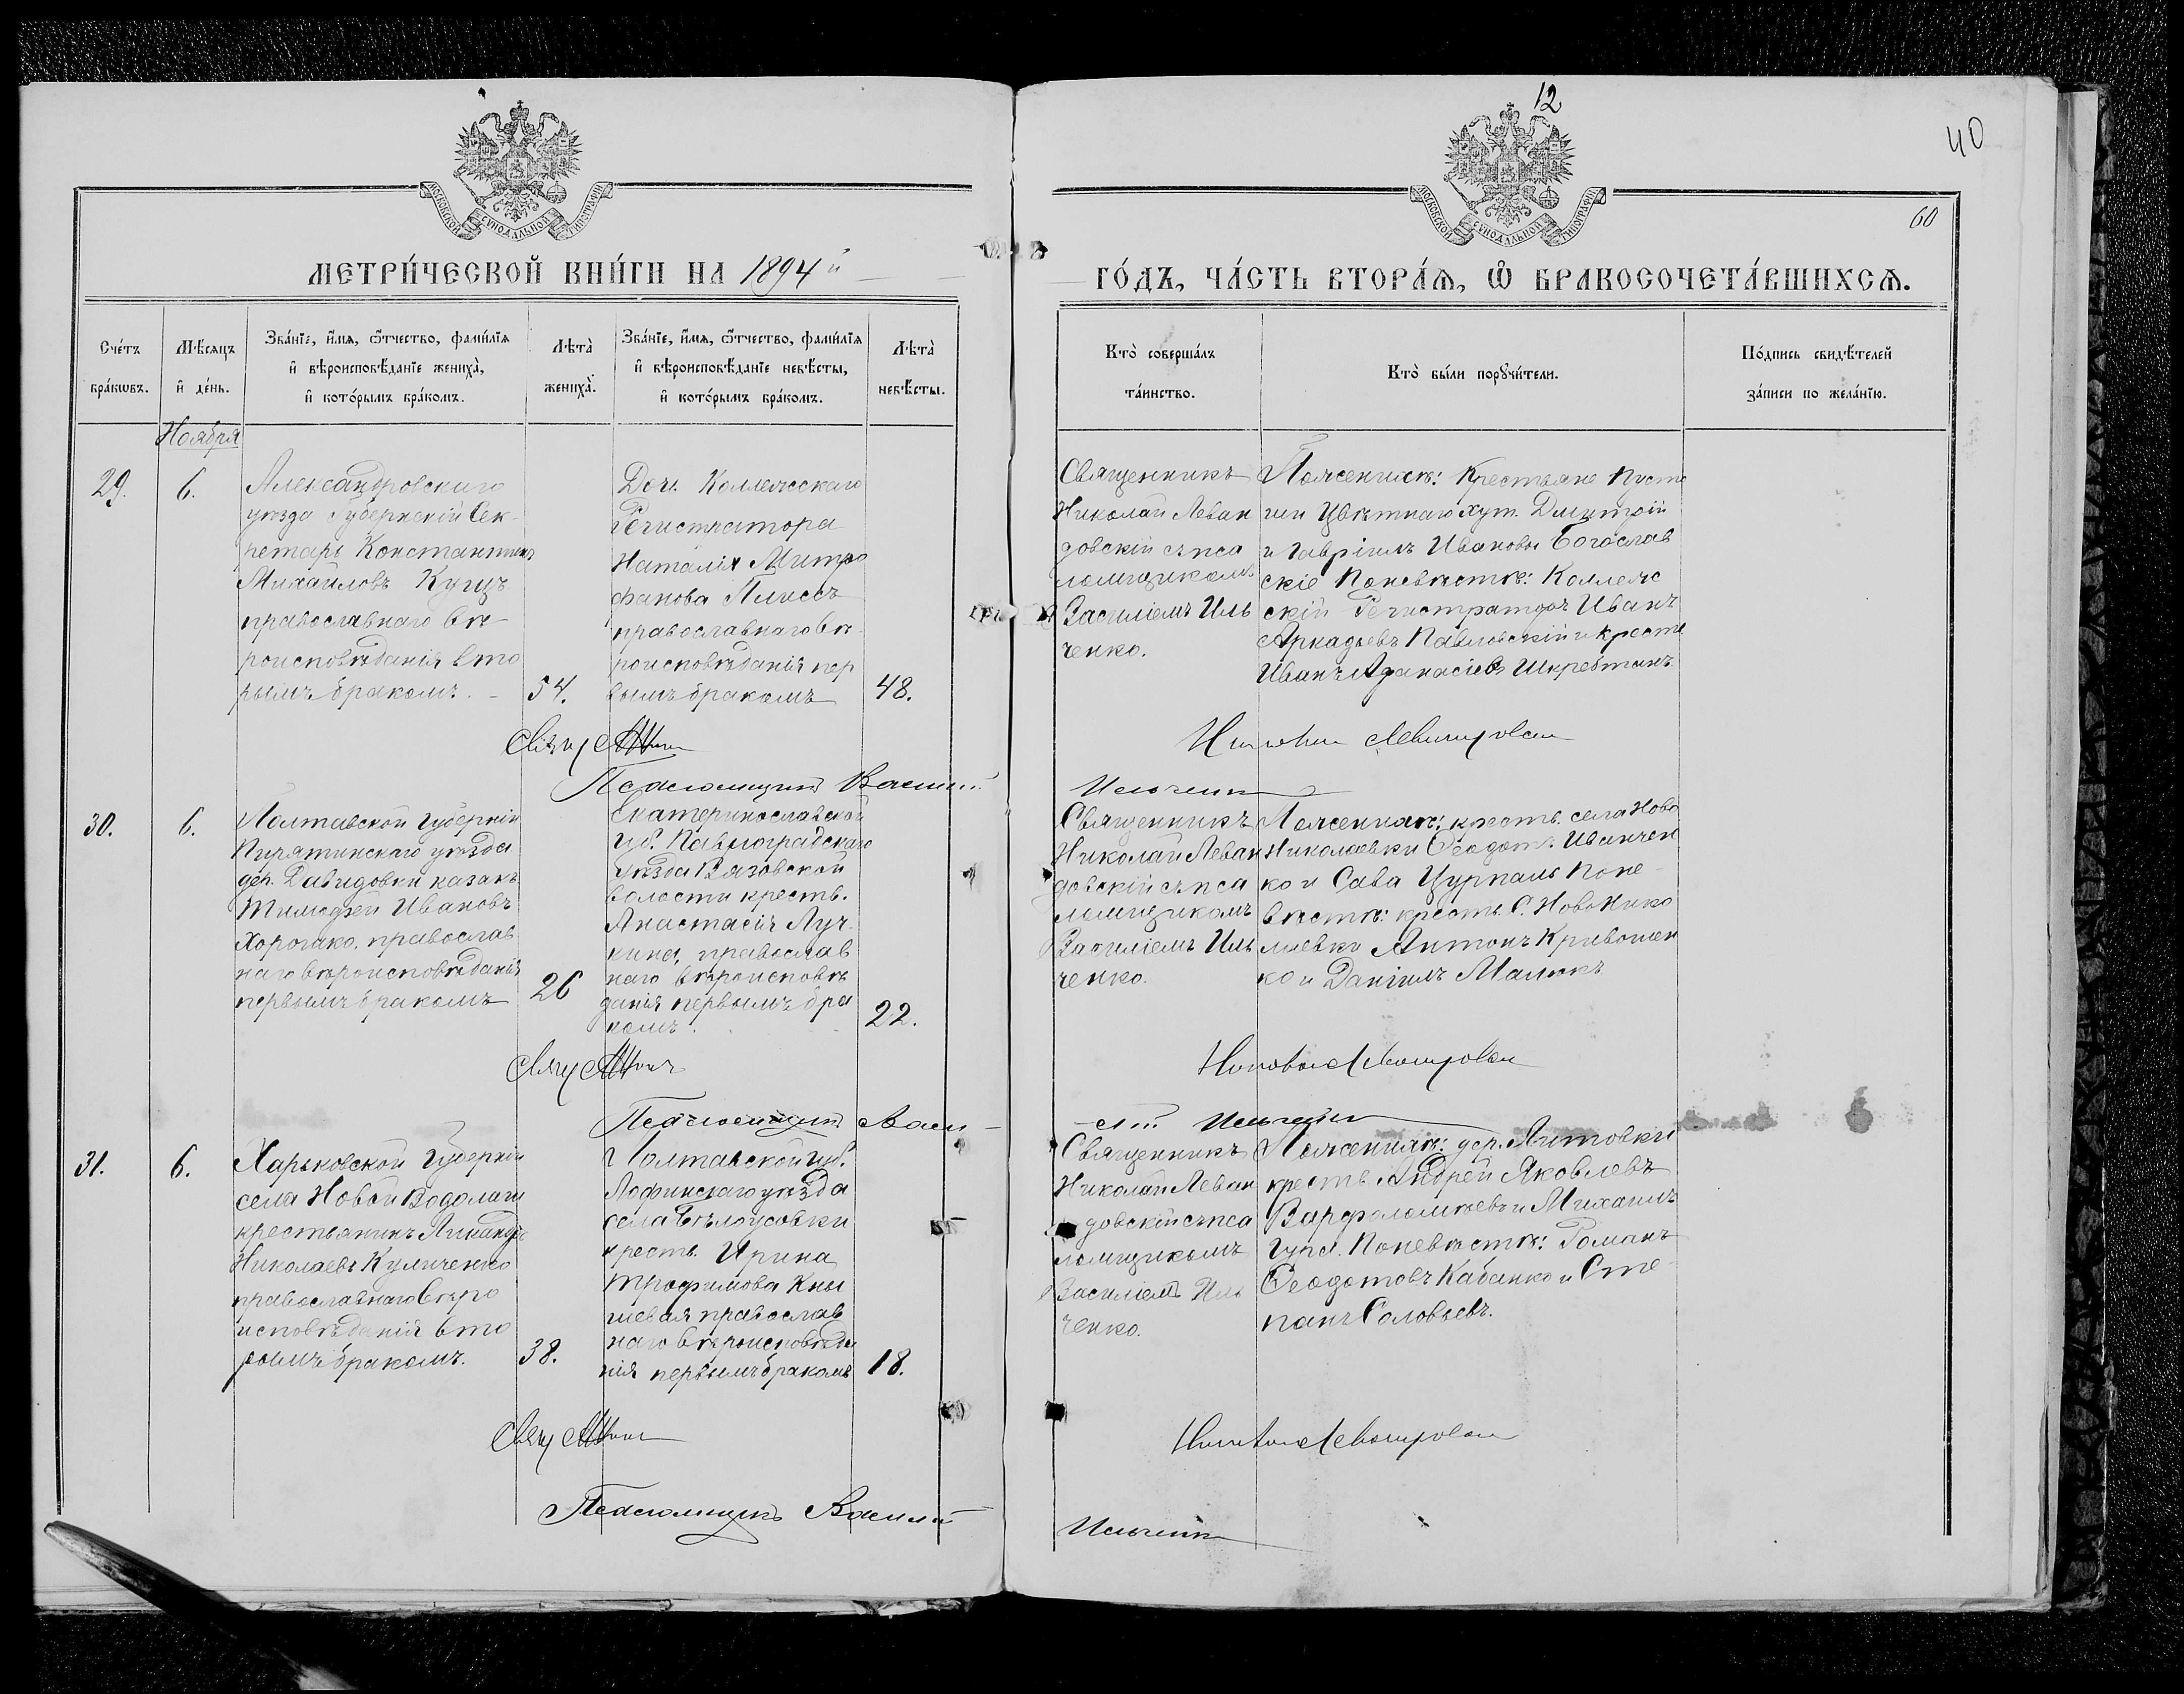 12
40
60
МОСКОВСКОЙ СѴНОДАЛЬНОЙ ТИПОГРАФІИ
МОСКОВСКОЙ СѴНОДАЛЬНОЙ ТИПОГРАФІИ
МЕТРИ́ЧЕСКОЙ КНИ́ГИ НА 1894 й
ГО́ДЪ, ЧА́СТЬ ВТОРА́Ѧ, Ѽ БРАКОСОЧЕТА́ВШИХСѦ.
Сче́тъ бра́кѡвъ.
Мѣ́сѧцъ и҆ де́нь.
Зва́нїе, и҆́мѧ, ѻ҆́тчество, фами́лїѧ
и҆ вѣроисповѣ́данїе жениха̀,
и҆ кото́рымъ бра́комъ.
Лѣта̀ жениха̀.
Зва́нїе, и҆́мѧ, ѻ҆́тчество, фами́лїѧ
и҆ вѣроисповѣ́данїе невѣ́сты,
и҆ кото́рымъ бра́комъ.
Лѣта̀ невѣ́сты.
Кто̀ соверша́лъ
та́инство.
Кто̀ бы́ли порꙋчи́тели.
По́дпись свидѣ́телей
за́писи по жела́нїю.
Ноября
29.
6.
Александровскаго
уѣзда Губернскій Сек-
ретарь Константинъ
Михайловъ Кущъ
православнаго вѣ-
роисповѣданія вто
рымъ бракомъ. -
54.
Доч. Коллежскаго
Регистратора
Наталія Митро
фанова Плиссъ
православнаго вѣ-
роисповѣданія пер
вымъ бракомъ
48.
Священникъ
Николай Леван
довскій съ пса
ломщикомъ
Василіемъ Иль
ченко.
По женихѣ: Крестьяне Пусто
ши Цвѣтнаго хут. Дмитрій
и Гавріилъ Ивановы Богослав
скіе По невѣстѣ: Коллеж
скій Регистраторъ Иванъ
Аркадьевъ Павловскій и крестн
Иванъ Афанасіевъ Шкребтанъ
Псаломщикъ Василій
Ильченко
30.
6.
Полтавской Губерніи
Пирятинскаго уѣзда
дер. Давидовки казакъ
Тимофей Ивановъ
Хорошко, православ
наго вѣроисповѣданія
первымъ бракомъ
26
Екатеринославской
губ. Павлоградскаго
уѣзда Вязовской
волости крестьн.
Анастасія Луч
кина, православ
наго вѣроисповѣ
данія первымъ бра
комъ.
22.
Священникъ
Николай Леван
довскій съ пса
ломщикомъ
Василіемъ Иль
ченко.
По женихѣ: крестьн. села Ново
Николаевки Ѳеодотъ Иванчен
ко и Сава Цурпаль По не-
вѣстѣ: крестьн. С. Ново Нико
лаевки Антонъ Кривошеи
ко и Даніилъ Малыкъ
Псаломщикъ Васи-
лій Ильченко
31.
6.
Харьковской Губерніи
села Новой Водолаги
крестьянинъ Никандръ
Николаевъ Куличенко
православнаго вѣро
исповѣданія вто
рымъ бракомъ.
38.
Полтавской губ.
Лофинскаго уѣзда
села Бѣлоусовки
крестьн. Ирина
Трофимова Кны
шевая православ
наго вѣроисповѣда
нія первымъ бракомъ
18.
Священникъ
Николай Леван
довскій съ пса
ломщикомъ
Василіемъ Иль
ченко.
По женихѣ: дер. Литовки
крестьн. Андрей Яковлевъ
Варфоломѣевъ и Михаилъ
Гупал. По невѣстѣ: Романъ
Ѳеодотовъ Кабанко и Сте-
панъ Соловьевъ.
Псаломщикъ Василій
Ильченко